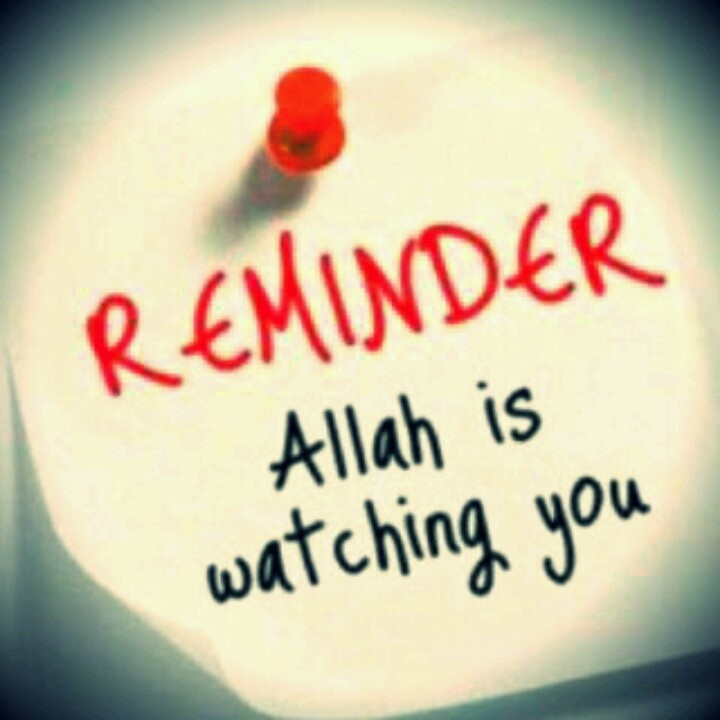 REMINDER
Allah is
watching you